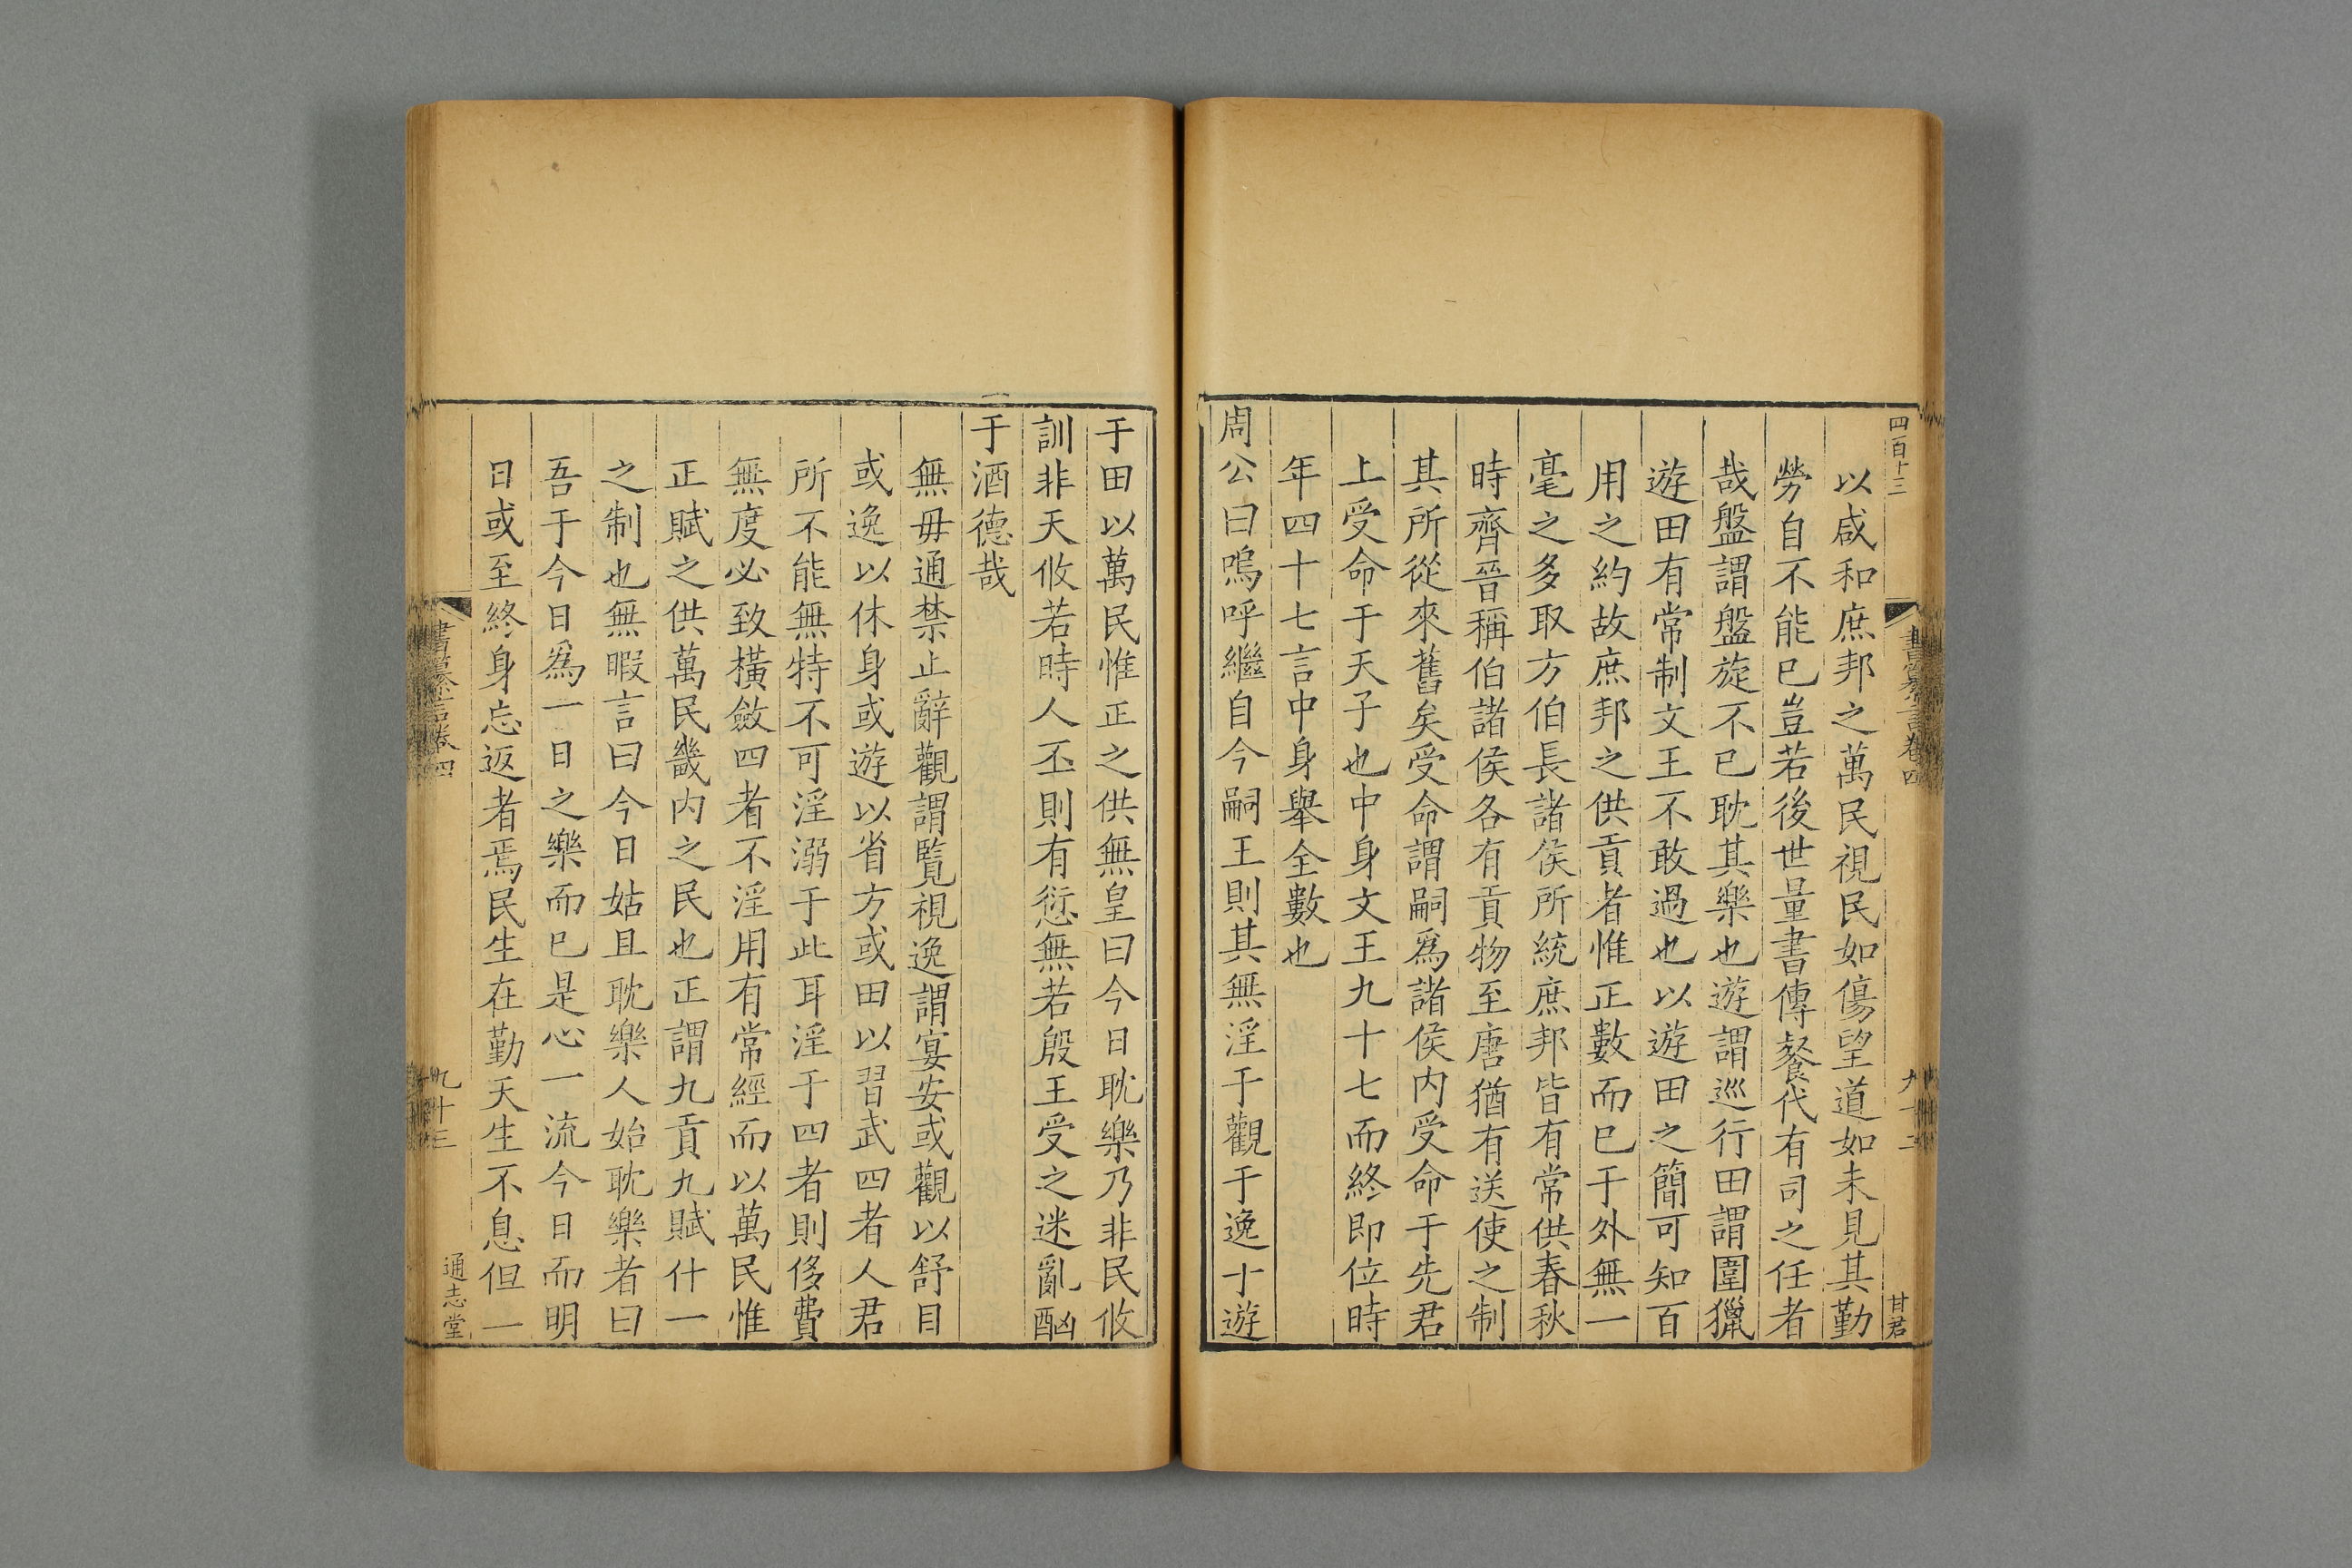 四百十三
甘君
以咸和庶邦之萬民視民如傷望道如未見其勤
勞自不能已豈若後世量書傳餐代有司之任者
哉盤謂盤旋不已耽其樂也遊謂巡行田謂圍獵
遊田有常制文王不敢過也以遊田之簡可知百
用之約故庶邦之供貢者惟正數而已于外無一
毫之多取方伯長諸侯所統庶邦皆有常供春秋
時齊晉稱伯諸侯各有貢物至唐猶有送使之制
其所從來舊矣受命謂嗣為諸侯内受命于先君
上受命于天子也中身文王九十七而終即位時
年四十七言中身舉全數也
周公曰嗚呼繼自今嗣王則其無淫于觀于逸于遊
于田以萬民惟正之供無皇曰今日耽樂乃非民攸
訓非天攸若時人丕則有愆無若殷王受之迷亂酗
于酒德哉
無毋通禁止辭觀謂覽視逸謂宴安或觀以舒目
或逸以休身或遊以省方或田以習武四者人君
所不能無特不可淫溺于此耳淫于四者則侈費
無度必致橫斂四者不淫用有常經而以萬民惟
正賦之供萬民畿内之民也正謂九貢九賦什一
之制也無暇言曰今日姑且耽樂人始耽樂者曰
吾于今日為一日之樂而已是心一流今日而明
日或至終身忘返者焉民生在勤天生不息但一
書纂言卷四
九十三
通志堂